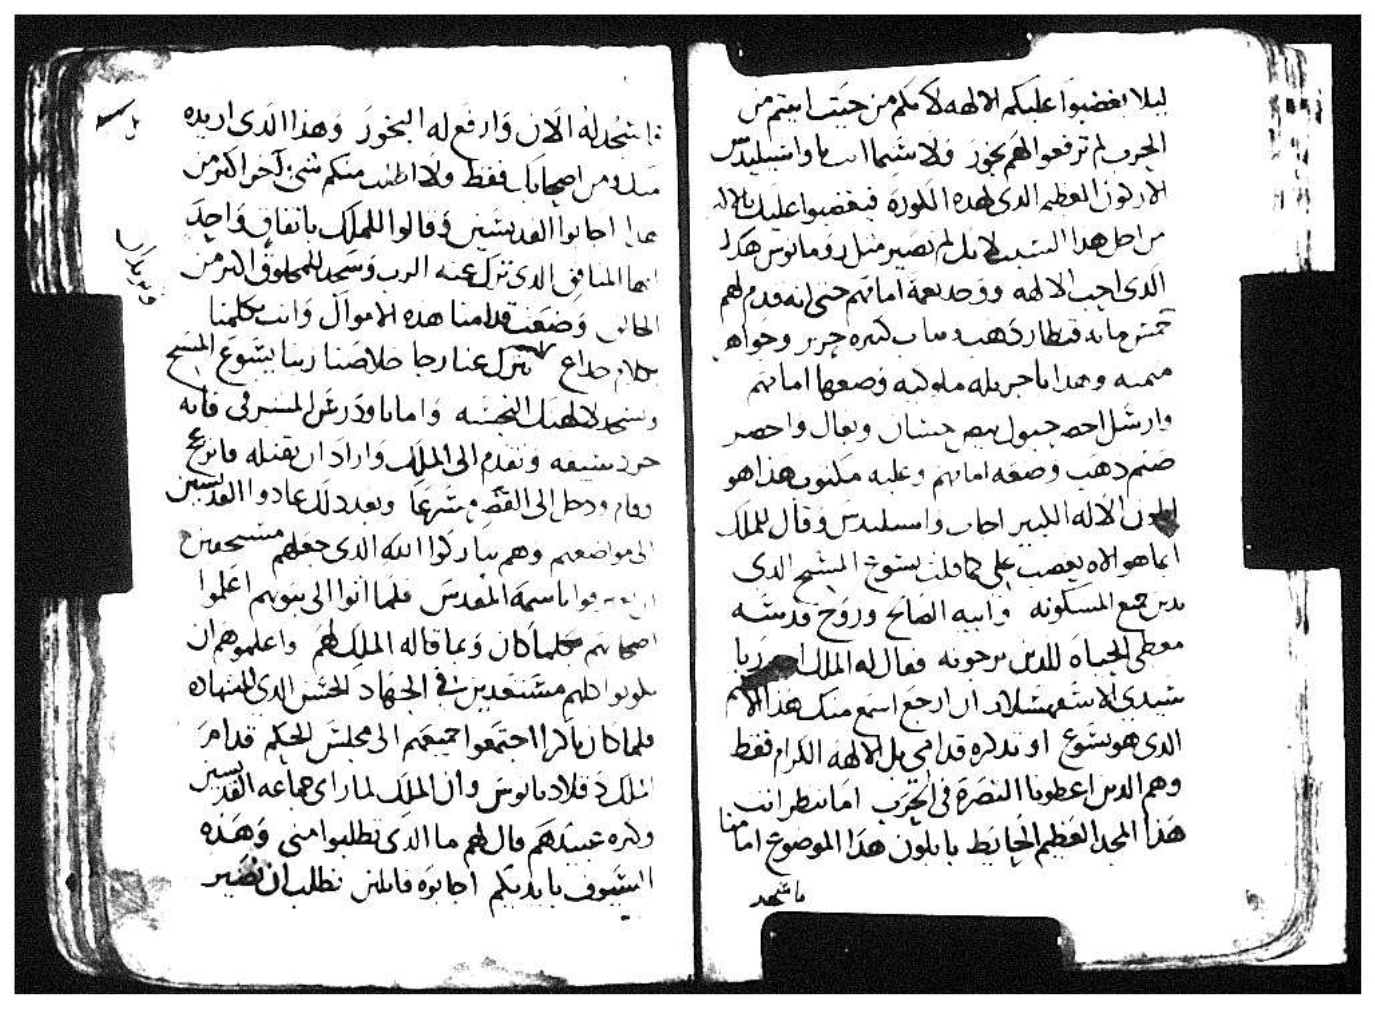 ليلا يغضبوا عليكم الالهه لانكم من حيت اتيتم من
الحرب لم ترفعوا لهم بخور ولا سيما انت يا واسيليدس
الاركون العظيم الذى لهده الكورة فيغضبوا عليك الالهه
من اجل هدا السبب لانك لم تصير متل رومانوس هدا
الذى احب الالهه ووجد نعمة امامهم حتى انه قدم لهم
خمس مايه قنطار دهب وتياب كتيره حرير وجواهر
متمنه وهدايا جزيله ملوكيه وضعها امامهم
وارسل احضر خيول بيض حسان وبغال واحضر
صنم دهب وضعه امامهم وعليه مكتوب هذا هو
ابلون الاله الكبير اجاب واسيليدس وقال للملك
انما هو الاه يغضب على كما قلت يسوع المسيح الدى
يدين جميع المسكونه وابيه الصالح وروح قدسه
معطى الحياه للدين يرجونه فقال له الملك احدر يا
سيدى الاسفهسلار ان ارجع اسمع منك هذا الاسم
الدى هو يسوع او تدكره قدامى بل الالهه الكرام فقط
وهم الدين اعطونا النصرة فى الحرب اما تنظر انت
هذا المجد العظيم الحايط بابلون هدا الموضوع امامنا
فاسجد
فاسجد له الان وارفع له البخور وهذا الذى اريده
منك ومن اصحابك فقط ولا اطلب منكم شى اخر اكتر من
هدا اجابوا القديسين وقالوا للملك باتفاق واحد
ايها المنافق الدى ترك عنه الرب وسجد للمخلوق اكتر من
الخالق وضعت قدامنا هده الاموال وانت تكلمنا
بكلام خداع لنترك عنا رجا خلاصنا ربنا يسوع المسيح
ونسجد لالهتك النجسه واما تاودرس المشرقى فانه
جرد سيفه وتقدم الى الملك واراد ان يقتله فانزعج
وقام ودخل الى القصر مسرعا وبعد دلك عادوا القديسين
الى مواضعهم وهم يباركوا الله الدى جعلهم مستحقين
ان يعترفوا باسمه المقدس فلما اتوا الى بيوتهم اعلموا
اصحابهم بكلما كان وبما قاله الملك لهم واعلموهم ان
يكونوا كلهم مستعدين فى الجهاد الحسن الدى للشهاده
فلما كان باكرا اجتمعوا جميعهم الى مجلس الحكم قدام
الملك دقلاديانوس وان الملك لما راى جماعه القديسين
وكتره عبيدهم قال لهم ما الدى تطلبوا منى وهذه
السيوف بايديكم اجابوه قايلين نطلب ان نصير